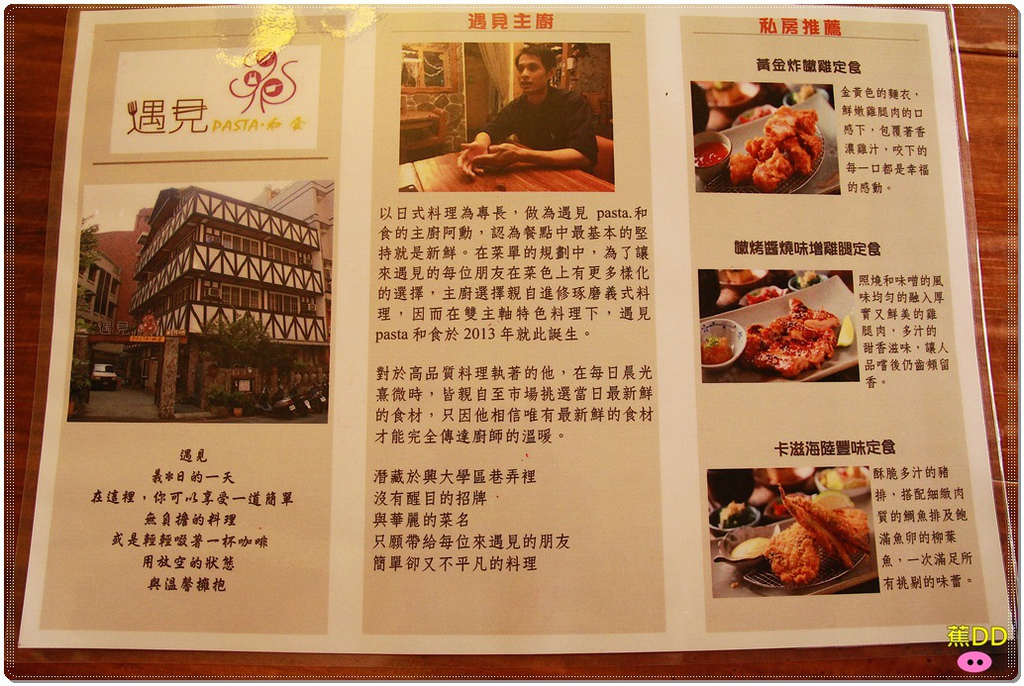 遇見
PASTA·和食
遇見
遇見
義*日的一天
在這裡，你可以享受一道簡單
無負擔的料理
或是輕輕啜著一杯咖啡
用放空的狀態
與溫馨擁抱
遇見主廚
以日式料理為專長，做為遇見 pasta.和
食的主廚阿勳，認為餐點中最基本的堅
持就是新鮮。在菜單的規劃中，為了讓
來遇見的每位朋友在菜色上有更多樣化
的選擇，主廚選擇親自進修琢磨義式料
理，因而在雙主軸特色料理下，遇見
pasta 和食於 2013 年就此誕生。
對於高品質料理執著的他，在每日晨光
熹微時，皆親自至市場挑選當日最新鮮
的食材，只因他相信唯有最新鮮的食材
才能完全傳達廚師的溫暖。
潛藏於興大學區巷弄裡
沒有醒目的招牌
與華麗的菜名
只願帶給每位來遇見的朋友
簡單卻又不平凡的料理
私房推薦
黃金炸嫩雞定食
金黃色的麵衣，
鮮嫩雞腿肉的口
感下，包覆著香
濃雞汁，咬下的
每一口都是幸福
的感動。
嫩烤醬燒味增雞腿定食
照燒和味噌的風
味均勻的融入厚
實又鮮美的雞
腿肉，多汁的
甜香滋味，讓人
品嚐後仍齒頰留
香。
卡滋海陸豐味定食
酥脆多汁的豬
排，搭配細緻肉
質的鯛魚排及飽
滿魚卵的柳葉
魚，一次滿足所
有挑剔的味蕾。
蕉DD